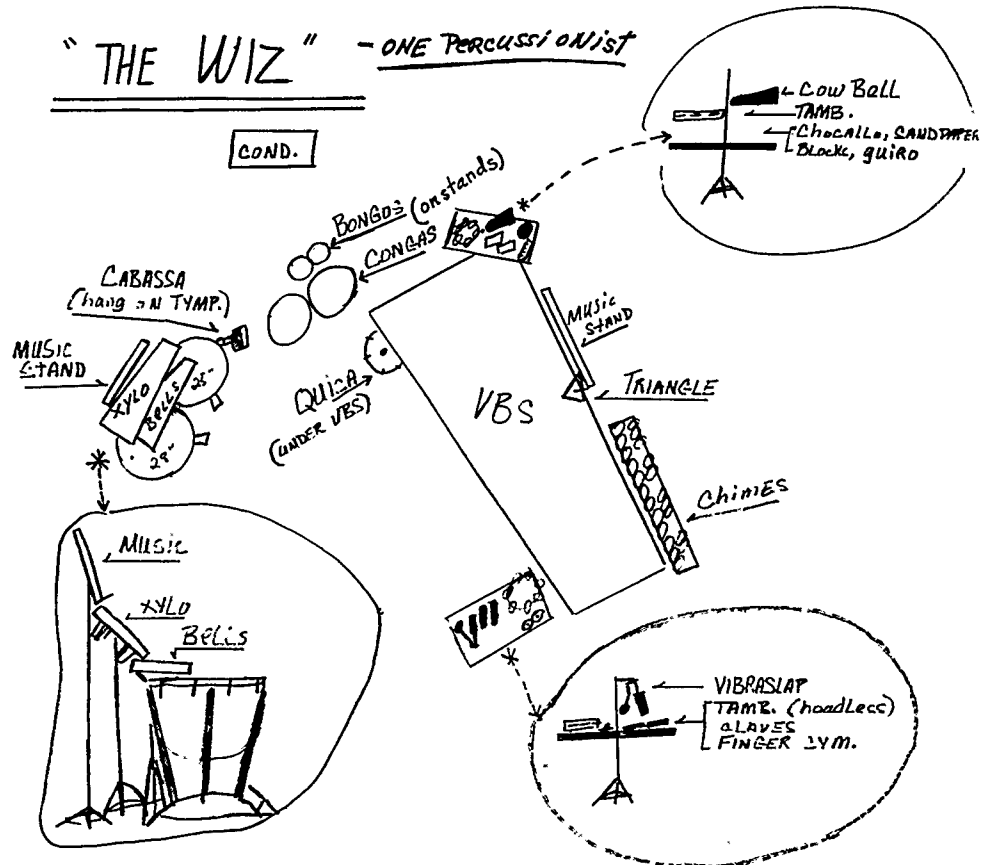 "THE WIZ" - ONE PERCUSSIONIST
COND.
COW BELL
TAMB.
CHOCALLO, SANDPAPER
BLOCKS, GUIRO
BONGOS (on stands)
CONGAS
CABASSA
(hang on TYMP.)
MUSIC
STAND
XYLO
BELLS
25"
28"
QUICA
(UNDER VBS)
VBS
MUSIC
STAND
TRIANGLE
CHIMES
MUSIC
XYLO
BELLS
VIBRASLAP
TAMB. (headless)
CLAVES
FINGER CYM.